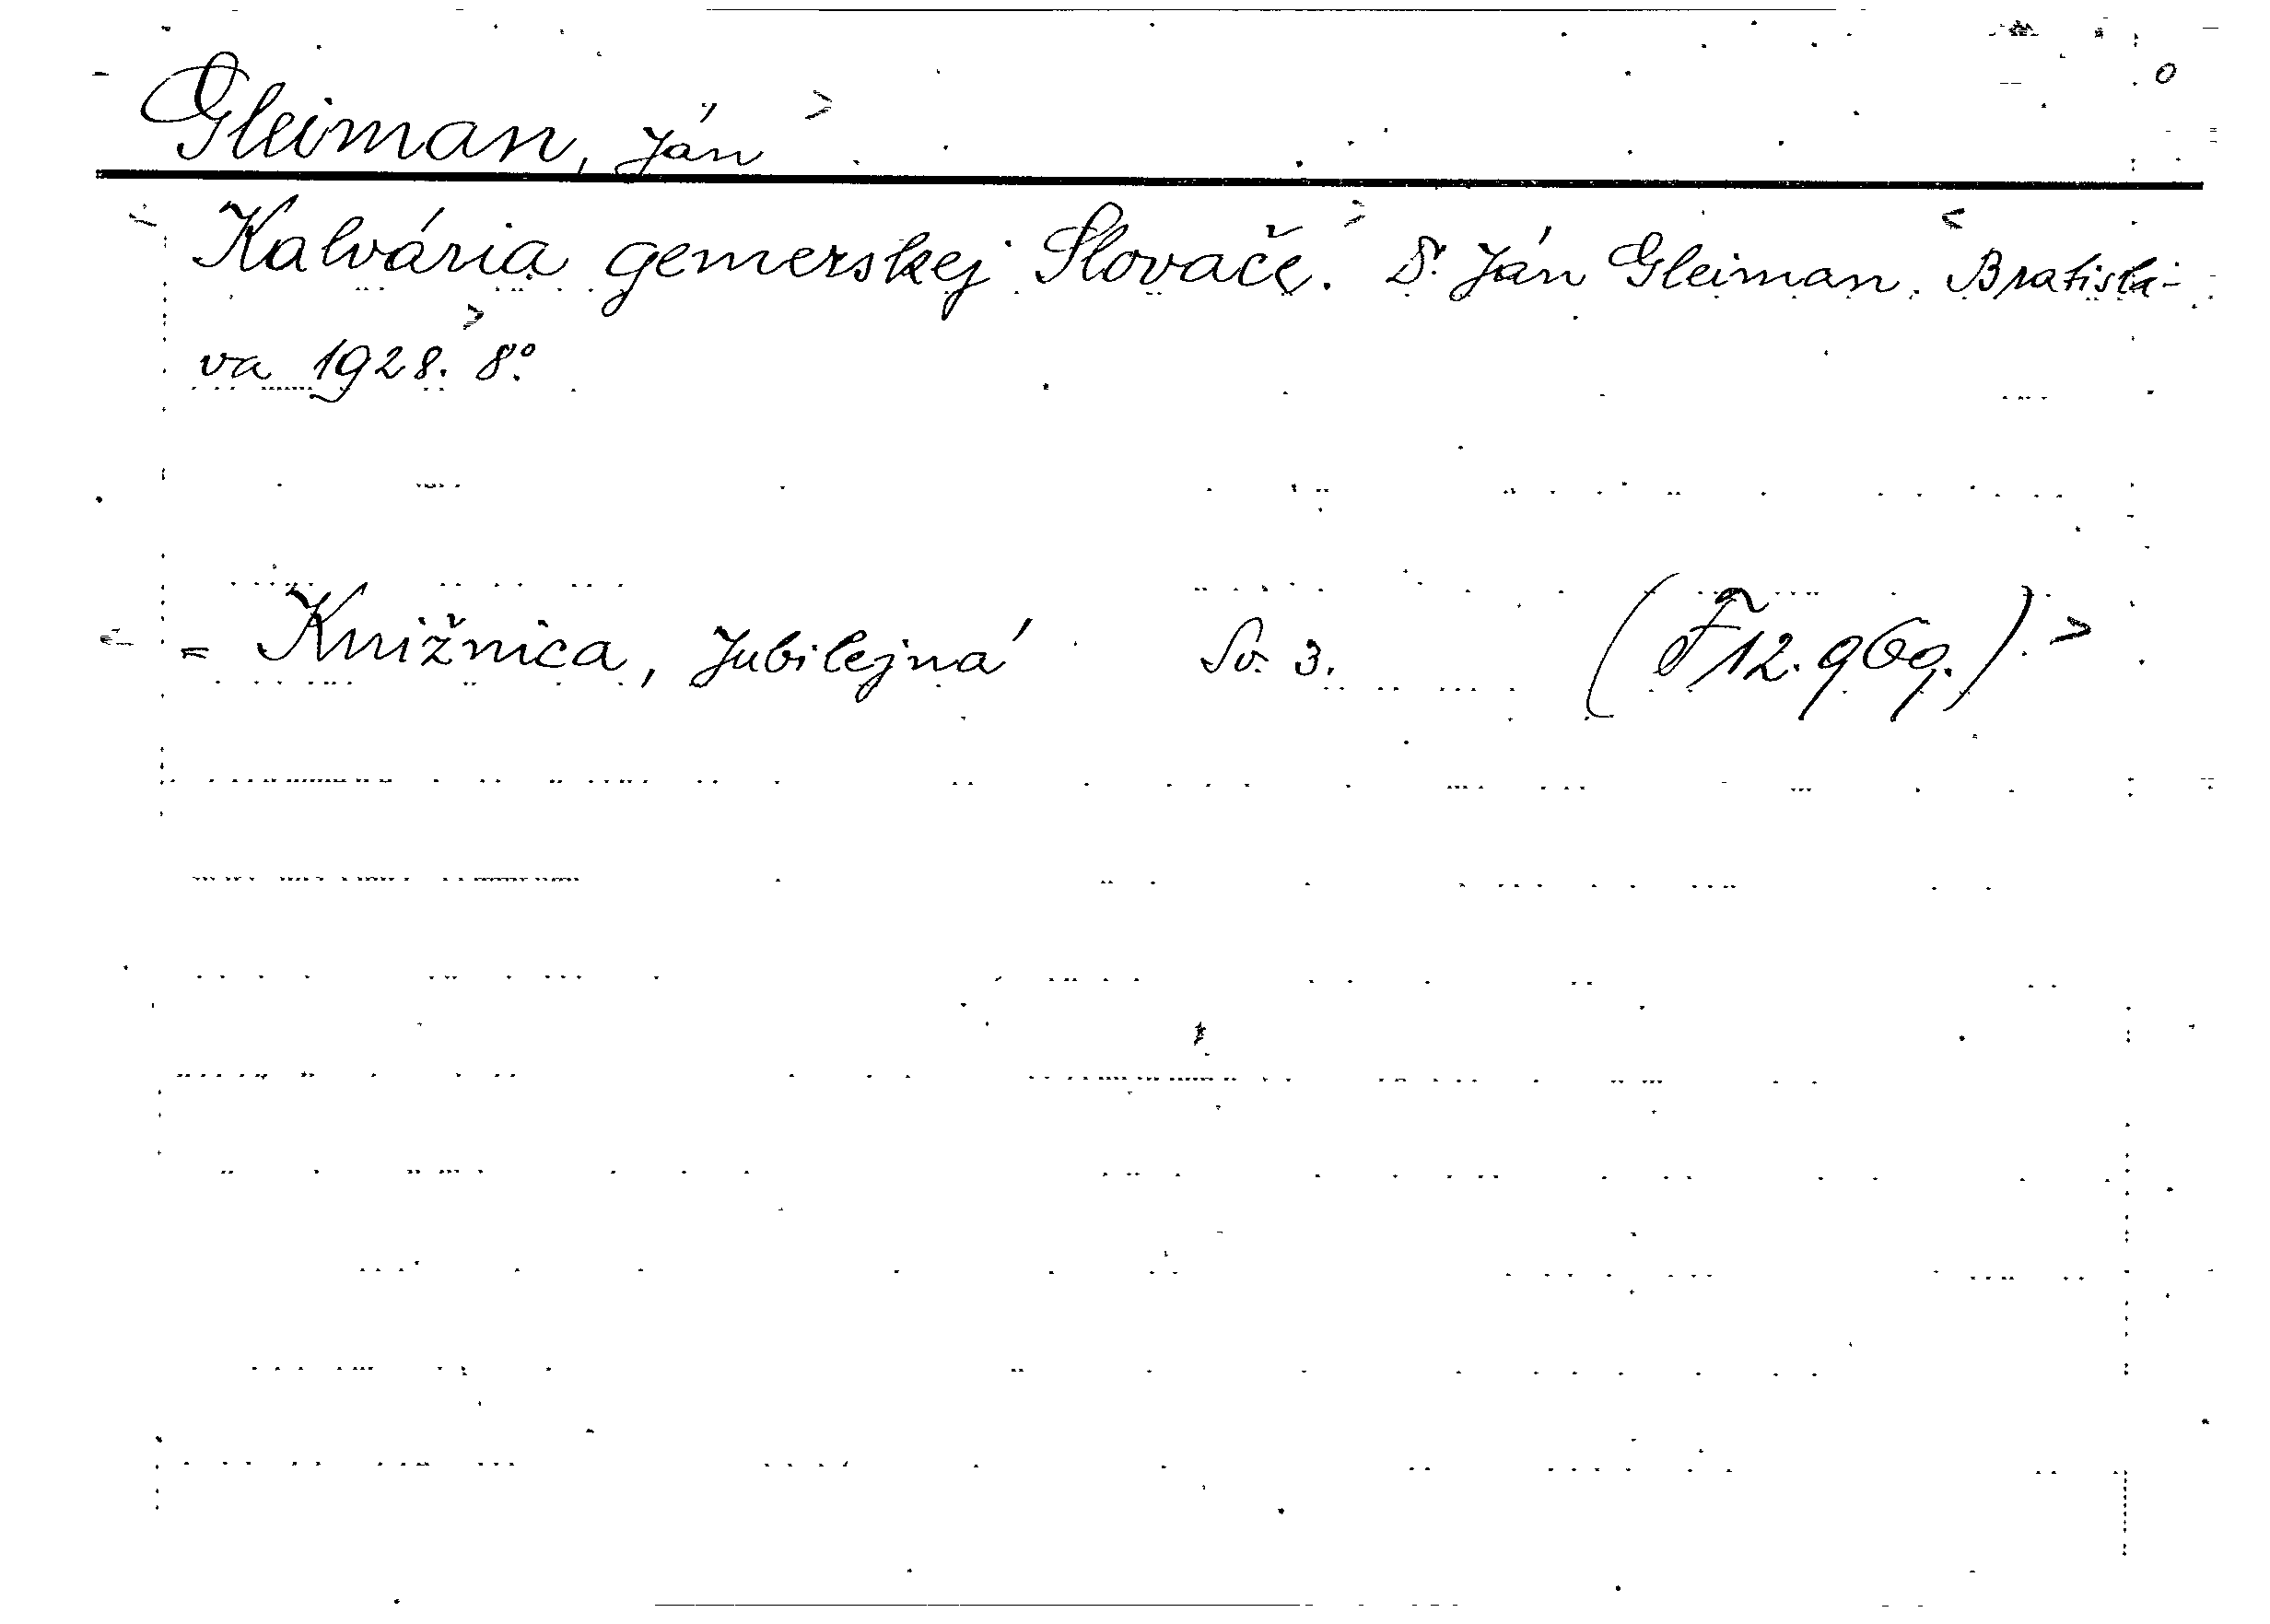 Gleiman, Ján >
Kalvária gemerskej Slovače.> Dr. Ján Gleiman. < Bratisla-
va 1928.> 8°.
< = Knižnica, Jubilejná Sv. 3. (F 12.969.).>